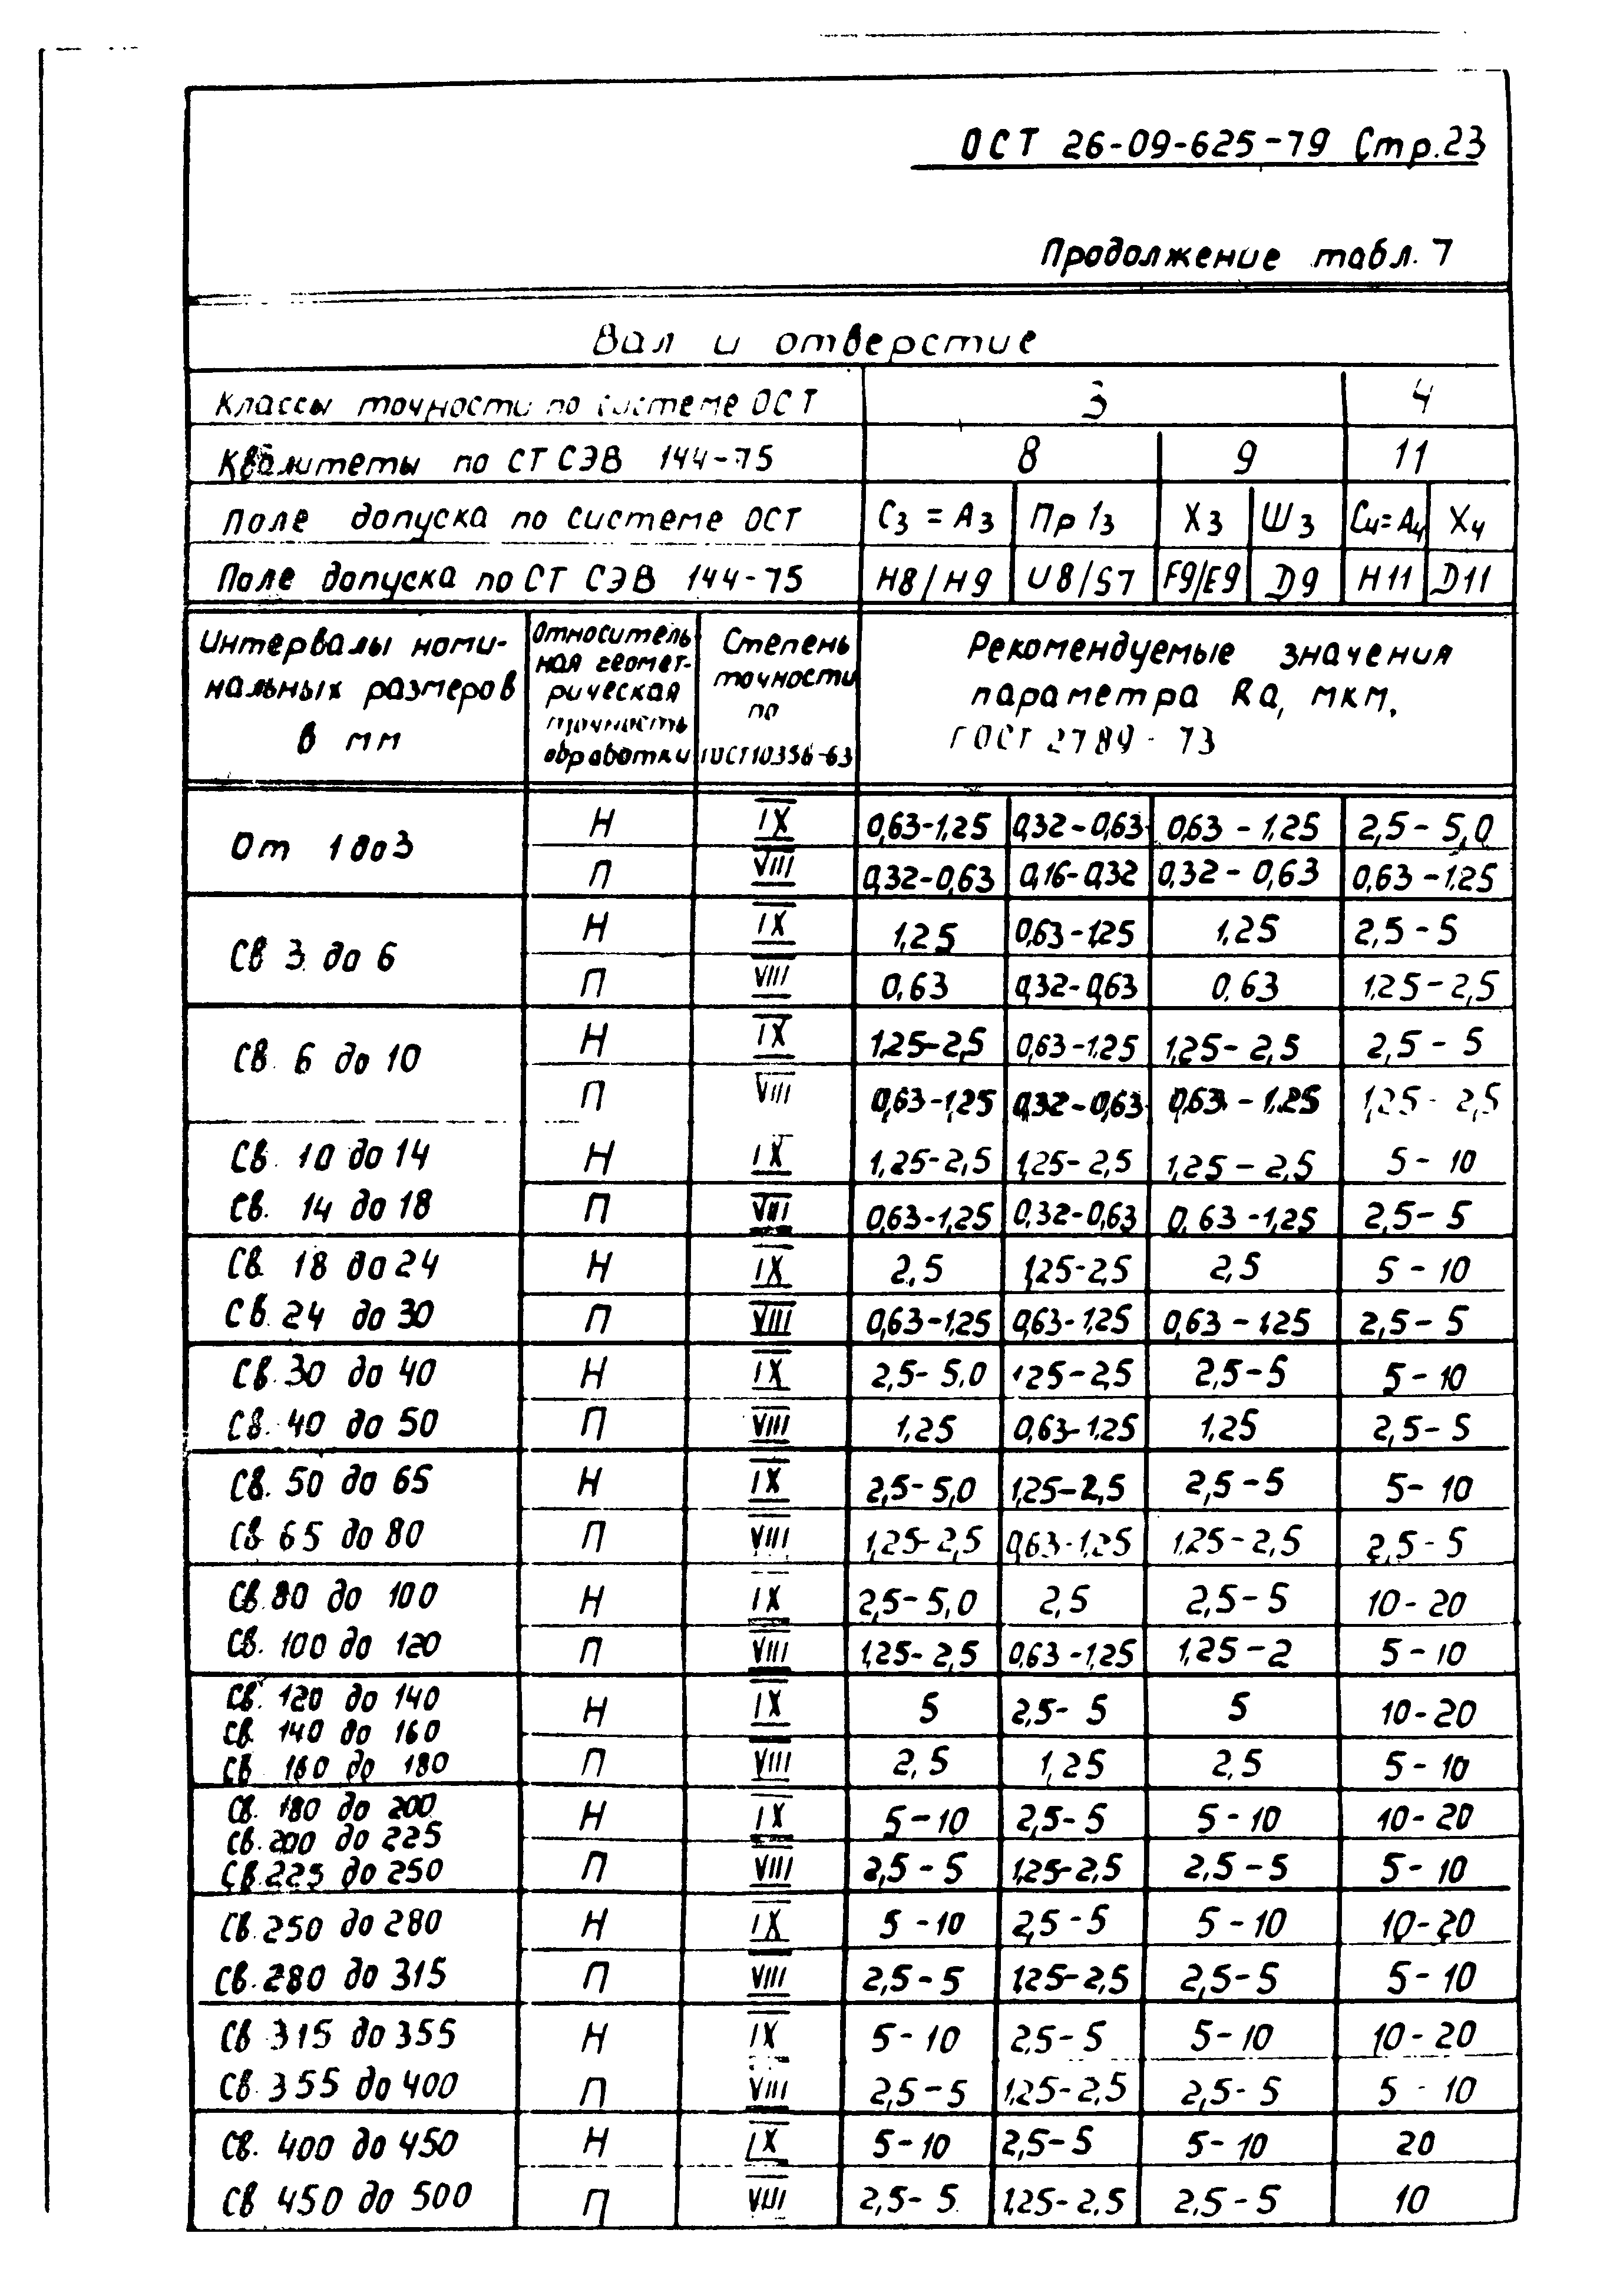 ОСТ 26-09-625-79 Стр.23
Продолжение табл. 7
Вал и отверстие
Классы точности по системе ОСТ 3 4
Квалитеты по СТ СЭВ 144-75 8 9 11
Поле допуска по системе ОСТ С3 = А3 Пр 13 Х3 Ш3 С4=А4 Х4
Поле допуска по СТ СЭВ 144-75 H8/H9 U8/S7 F9/E9 D9 H11 D11
Интервалы номи-
нальных размеров
в мм
Относитель
ная геомет-
рическая
точность
обработки
Степень
точности
по
ГОСТ10356-63
Рекомендуемые значения
параметра Ra, мкм,
ГОСТ 2789-73
От 1 до 3
Н IX 0,63-1,25 0,32-0,63 0,63-1,25 2,5-5,0
П VIII 0,32-0,63 0,16-0,32 0,32-0,63 0,63-1,25
Св 3 до 6
Н IX 1,25 0,63-1,25 1,25 2,5-5
П VIII 0,63 0,32-0,63 0,63 1,25-2,5
Св. 6 до 10
Н IX 1,25-2,5 0,63-1,25 1,25-2,5 2,5-5
П VIII 0,63-1,25 0,32-0,63 0,63-1,25 1,25-2,5
Св. 10 до 14 Н IX 1,25-2,5 1,25-2,5 1,25-2,5 5-10
Св. 14 до 18 П VIII 0,63-1,25 0,32-0,63 0,63-1,25 2,5-5
Св 18 до 24 Н IX 2,5 1,25-2,5 2,5 5-10
Св. 24 до 30 П VIII 0,63-1,25 0,63-1,25 0,63-1,25 2,5-5
Св. 30 до 40 Н IX 2,5-5,0 1,25-2,5 2,5-5 5-10
Св. 40 до 50 П VIII 1,25 0,63-1,25 1,25 2,5-5
Св. 50 до 65 Н IX 2,5-5,0 1,25-2,5 2,5-5 5-10
Св 65 до 80 П VIII 1,25-2,5 0,63-1,25 1,25-2,5 2,5-5
Св. 80 до 100 Н IX 2,5-5,0 2,5 2,5-5 10-20
Св. 100 до 120 П VIII 1,25-2,5 0,63-1,25 1,25-2 5-10
Св. 120 до 140
Св. 140 до 160
Св 160 до 180
Н IX 5 2,5-5 5 10-20
П VIII 2,5 1,25 2,5 5-10
Св. 180 до 200
Св. 200 до 225
Св. 225 до 250
Н IX 5-10 2,5-5 5-10 10-20
П VIII 2,5-5 1,25-2,5 2,5-5 5-10
Св. 250 до 280 Н IX 5-10 2,5-5 5-10 10-20
Св. 280 до 315 П VIII 2,5-5 1,25-2,5 2,5-5 5-10
Св 315 до 355 Н IX 5-10 2,5-5 5-10 10-20
Св. 355 до 400 П VIII 2,5-5 1,25-2,5 2,5-5 5-10
Св. 400 до 450 Н IX 5-10 2,5-5 5-10 20
Св 450 до 500 П VIII 2,5-5 1,25-2,5 2,5-5 10